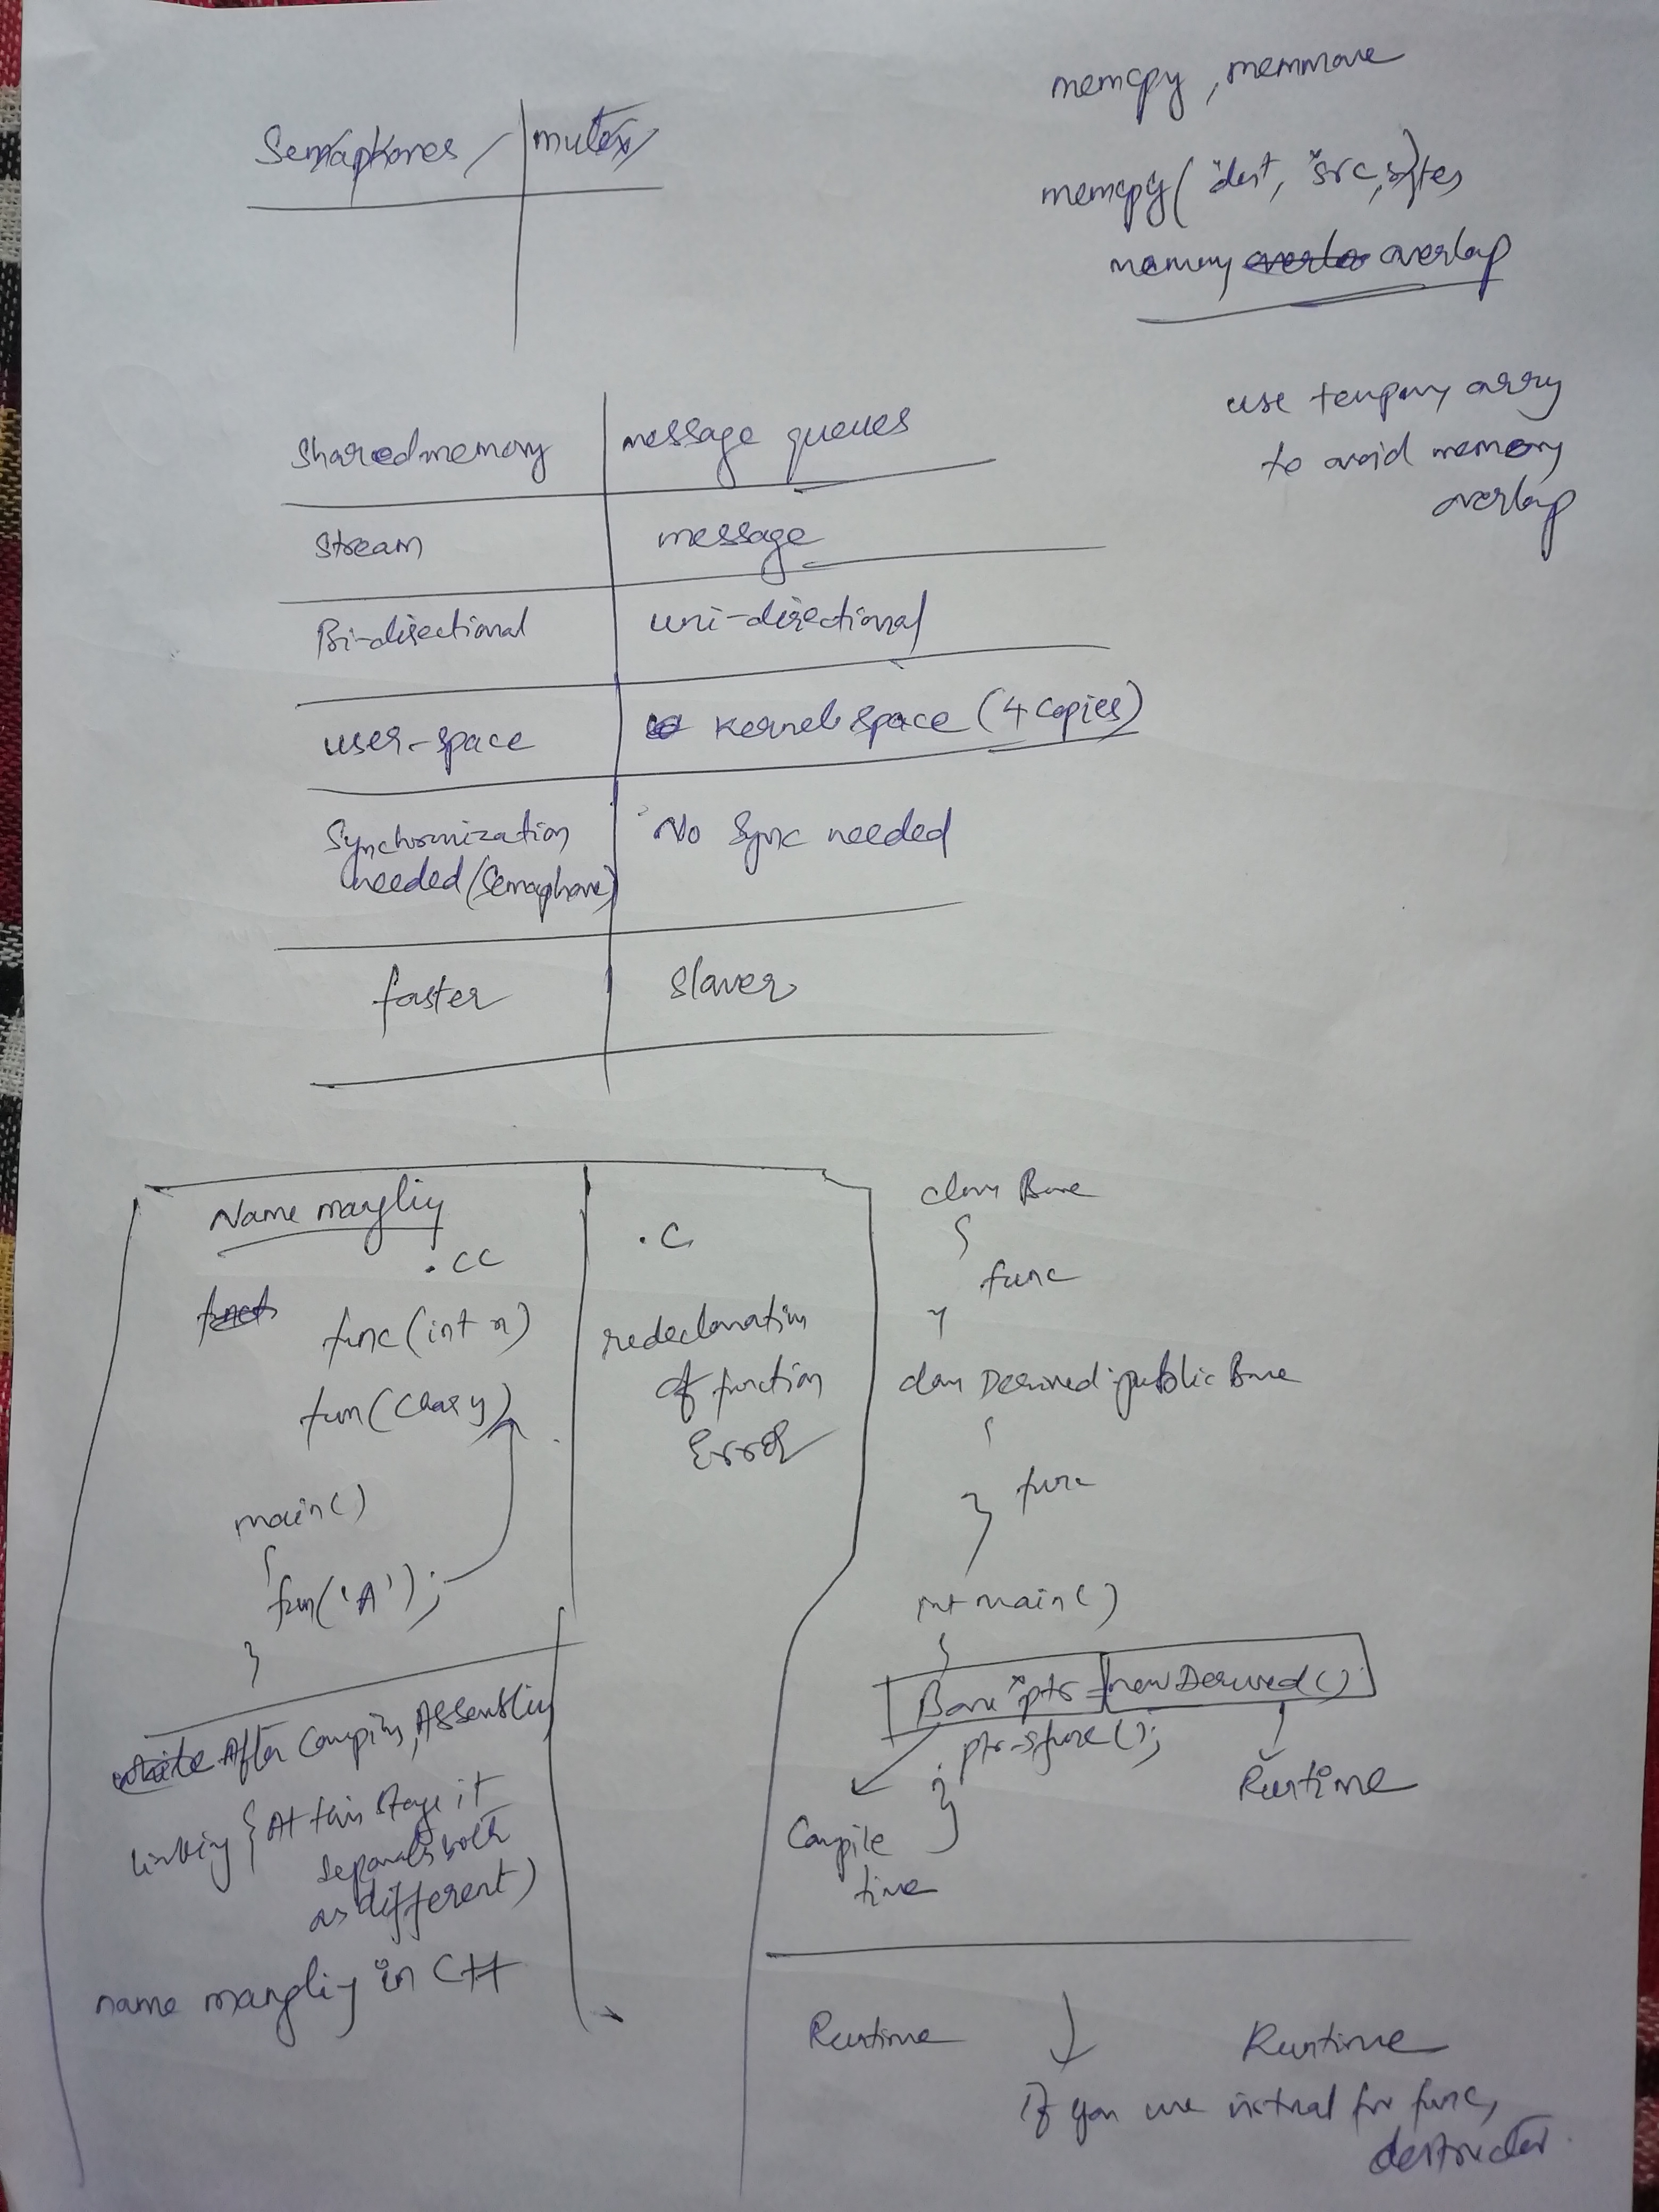 Semaphores / mutex
memcpy, memmove
memcpy(*dest, *src, bytes)
memory overlap
use tempary arry
to avoid memory
overlap
Sharedmemory message queues
Stream message
Bi-directional uni-directional
user-space Kernel space (4 copies)
Synchronization No Sync needed
needed (Semaphore)
faster slower
Name mangliy
.cc
func(int x)
fun(char y)
main()
{
fun('A');
}
After Compiling, Assembling
linking { At this stage it
separates both
as different)
name mangliy in C++
.C
redeclaration
of function
Error
class Base
{
func
}
class Derived : public Base
{
func
}
int main()
{
Base *ptr = new Derived()
ptr->func();
}
Compile
time
Runtime
Runtime Runtime
If you use virtual for func,
destructor